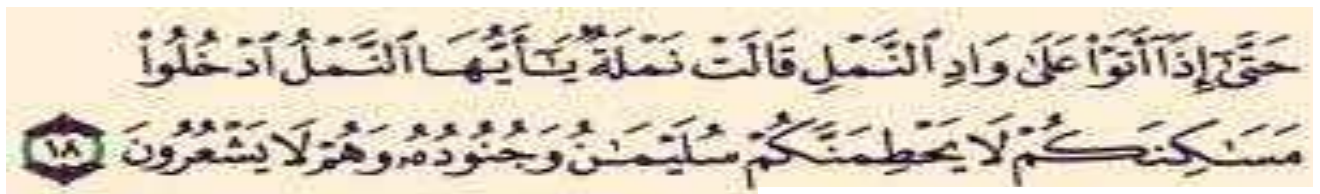 حَتَّىٰٓ إِذَآ أَتَوْا۟ عَلَىٰ وَادِ ٱلنَّمْلِ قَالَتْ نَمْلَةٌ يَـٰٓأَيُّهَا ٱلنَّمْلُ ٱدْخُلُوا۟
مَسَـٰكِنَكُمْ لَا يَحْطِمَنَّكُمْ سُلَيْمَـٰنُ وَجُنُودُهُۥ وَهُمْ لَا يَشْعُرُونَ ١٨